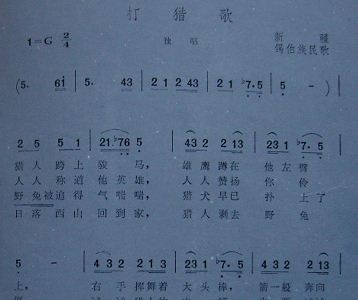 打猎歌
1=G 2/4
独唱
新疆
锡伯族民歌
(5. 61 | 5. 43 | 2 1 2 43 | 2 1 ♭7. 5 | 5 - )
2 5 5 1 | 21 ♭76 5 | 43 2 43 2 | 23 1 ♭7. 5
猎人跨上骏马, 雄鹰蹲在他左臂
人人称道他英雄, 人人赞扬你伶
野兔被追得气喘喘, 猎犬早已扑上了
日落西山回到家, 猎人剥去野兔
5 - | 4 3 2 4 3 2 | 2 1 2 3 1 | 5 5 5 4 3 2
上, 右手挥舞着大头棒, 箭一般奔向